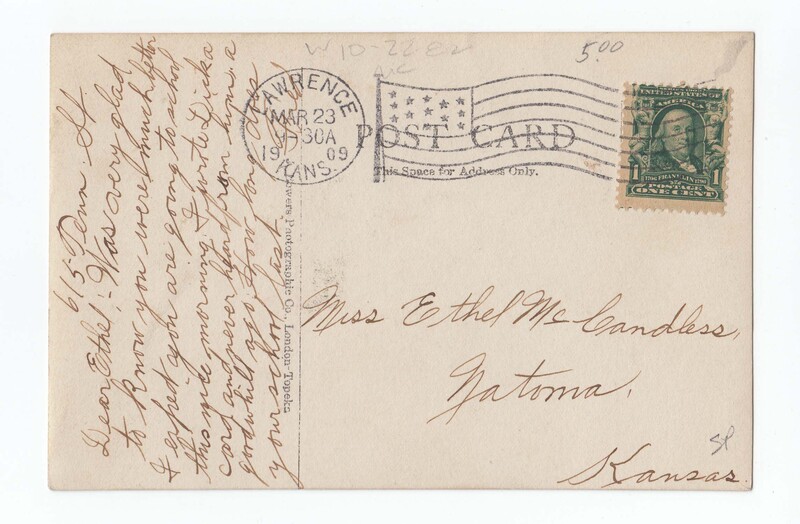 W 10-22-82
5.00
LAWRENCE
MAR 23
30A
1909
KANS.
POST CARD
This Space for Address Only.
SERIES 1902
UNITED STATES OF
AMERICA
1706 FRANKLIN 1790
1 POSTAGE 1
ONE CENT
Photographic Co., London-Topeka
615- Penn. St
Dear Ethel:- Was very glad
to know you were much better
I expect you are going to school
this nice morning. I wrote
card and never heard from him a
good while ago. How long does
your school last
Miss Ethel McCandless,
Natoma,
Kansas.